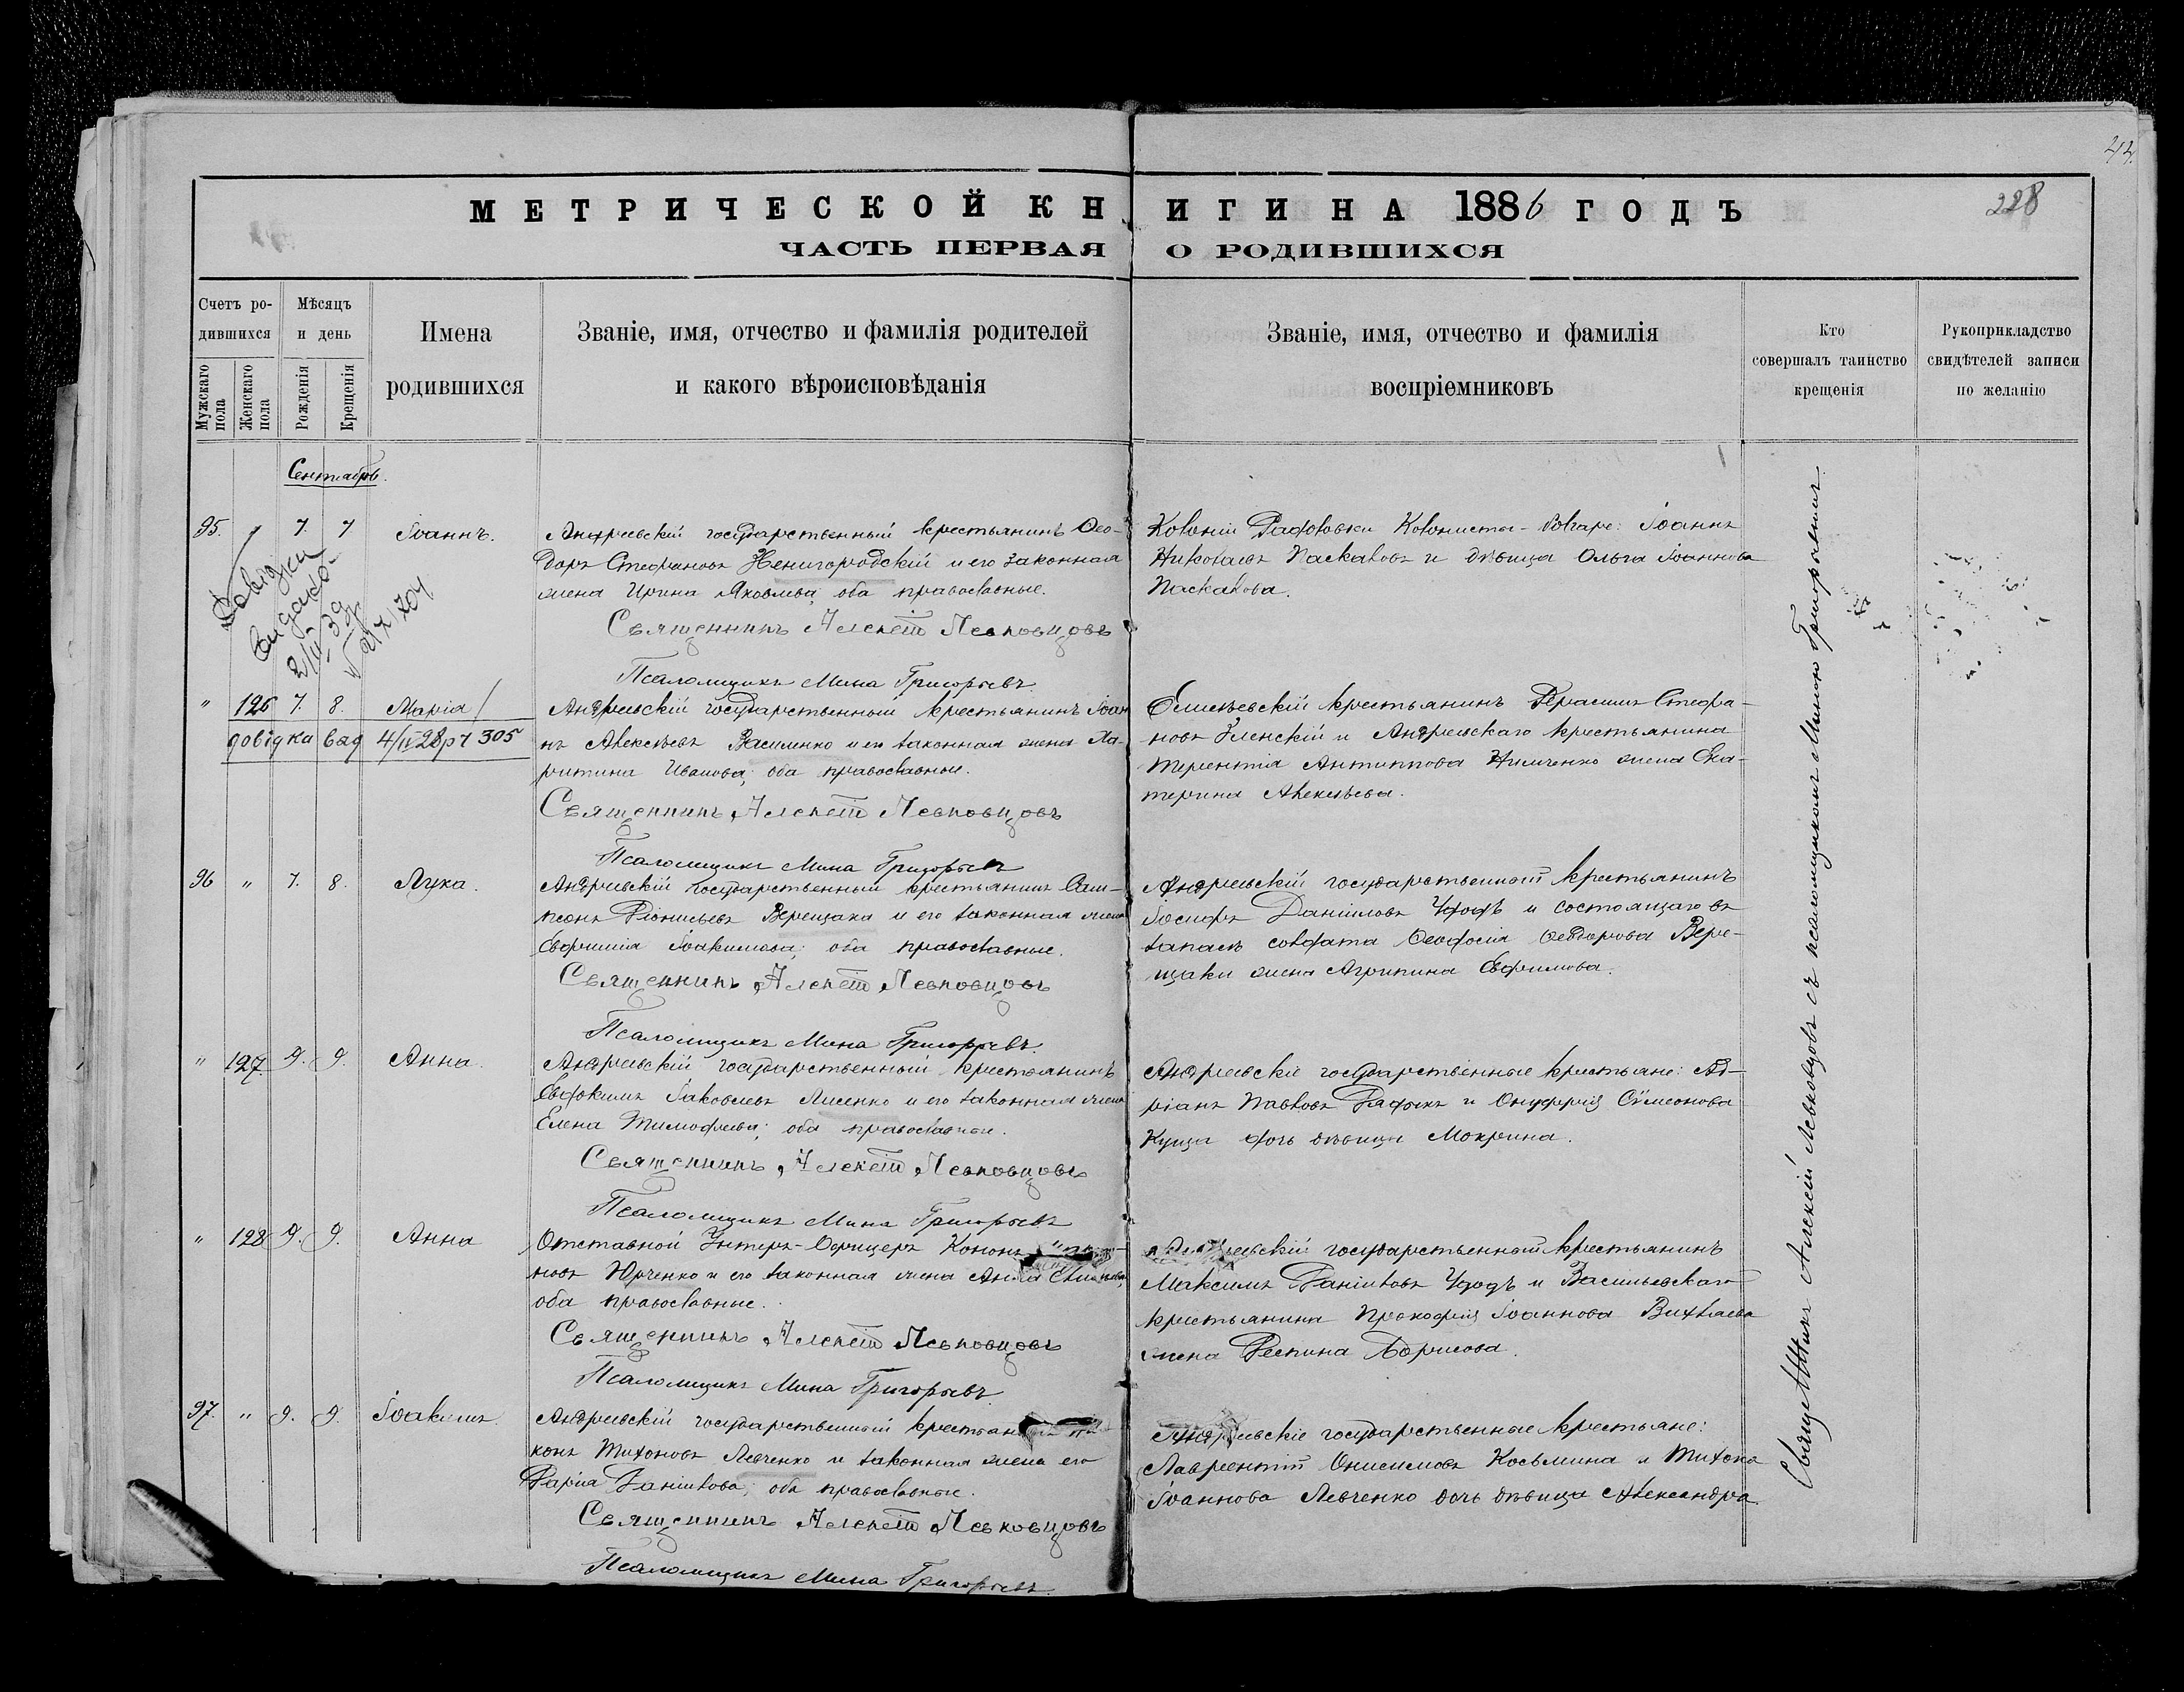 44.
МЕТРИЧЕСКОЙ КНИГИ НА 1886 ГОДЪ
228
ЧАСТЬ ПЕРВАЯ О РОДИВШИХСЯ
Счетъ родившихся
Мѣсяцъ и день
Имена родившихся
Званіе, имя, отчество и фамилія родителей и какого вѣроисповѣданія
Званіе, имя, отчество и фамилія воспріемниковъ
Кто совершалъ таинство крещенія
Рукоприкладство свидѣтелей записи по желанію
Мужскаго пола
Женскаго пола
Рожденія
Крещенія
Сентябрь.
95. 7. 7 Іоаннъ.
Андреевскій государственный крестьянинъ Ѳео-
доръ Стефановъ Ненигородскій и его законная
жена Ирина Яковлева, оба православные.
Священникъ Алексій Левковцовъ
Псаломщикъ Мина Григорьевъ.
Колоніи Колонисты-Болгаре: Іоаннъ
Николаевъ Паскаловъ и дѣвица Ольга Іоаннова
Паскалова.
Довідка
видана
" 126 7. 8. Марія
довідка вад 4/IV 28 р ч 305
Андреевскій государственный крестьянинъ Іоан
нъ Алексѣевъ Василенко и его законная жена Ха-
ритина Иванова, оба православные.
Священникъ Алексій Левковцовъ
Псаломщикъ Мина Григорьевъ
крестьянинъ Герасимъ Стефа-
новъ Зленскій и Андреевскаго крестьянина
Терентія Антиппова Нимченко жена Ека-
терина Алексѣева.
96 " 7. 8. Лука.
Андреевскій государственный крестьянинъ Сам-
псонъ Діонисьевъ Верещака и его законная жена
Евфимія Іоакимова; оба православные.
Священникъ Алексій Левковцовъ
Псаломщикъ Мина Григорьевъ.
Андреевскій государственный крестьянинъ
Іосифъ Даніиловъ Удодъ и состоящаго въ
запасѣ солдата Ѳеодосія Ѳеодорова Вере-
щаки жена Агрипина Евфимова.
" 127. 9. 9. Анна.
Андреевскій государственный крестьянинъ
Евдокимъ Іаковлевъ Лисенко и его законная жена
Елена Тимофеева; оба православные.
Священникъ Алексій Левковцовъ
Псаломщикъ Мина Григорьевъ
Андреевскіе государственные крестьяне: Ад-
ріанъ Павловъ и Онуфрія Сѵмеонова
Куца дочь дѣвица Мокрина.
" 128 9. 9. Анна
Отставной Унтеръ-Офицеръ Кононъ
новъ Юрченко и его законная жена Анна
оба православные.
Священникъ Алексій Левковцовъ
Псаломщикъ Мина Григорьевъ
Андреевскій государственный крестьянинъ
Максимъ Даніиловъ Удодъ и Васильевскаго
крестьянина Прокофія Іоаннова Вихляева
жена Деспина Борисова.
97. " 9. 9. Іоакимъ.
Андреевскій государственный крестьянинъ
конъ Тихоновъ Левченко и законная жена его
Дарія Даніилова; оба православные.
Священникъ Алексій Левковцовъ
Псаломщикъ Мина Григорьевъ.
Андреевскіе государственные крестьяне:
Лаврентій Онисимовъ Косьмина и Тихона
Іоаннова Левченко дочь дѣвица Александра.
Священникъ Алексій Левковцовъ съ псаломщикомъ Миною Григорьевымъ